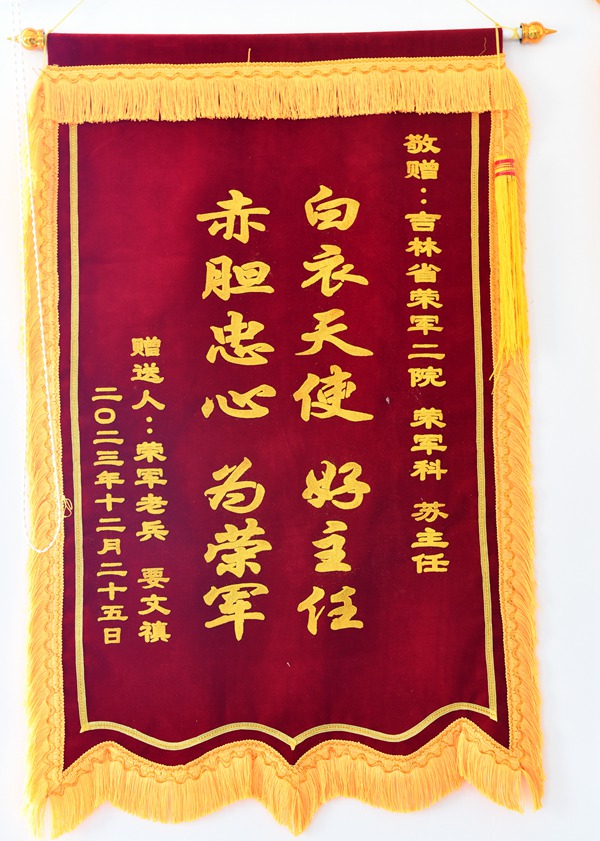 敬赠：吉林省荣军二院 荣军科 苏主任
白衣天使 好主任
赤胆忠心 为荣军
赠送人：荣军老兵 要文禛
二〇二三年十二月二十五日